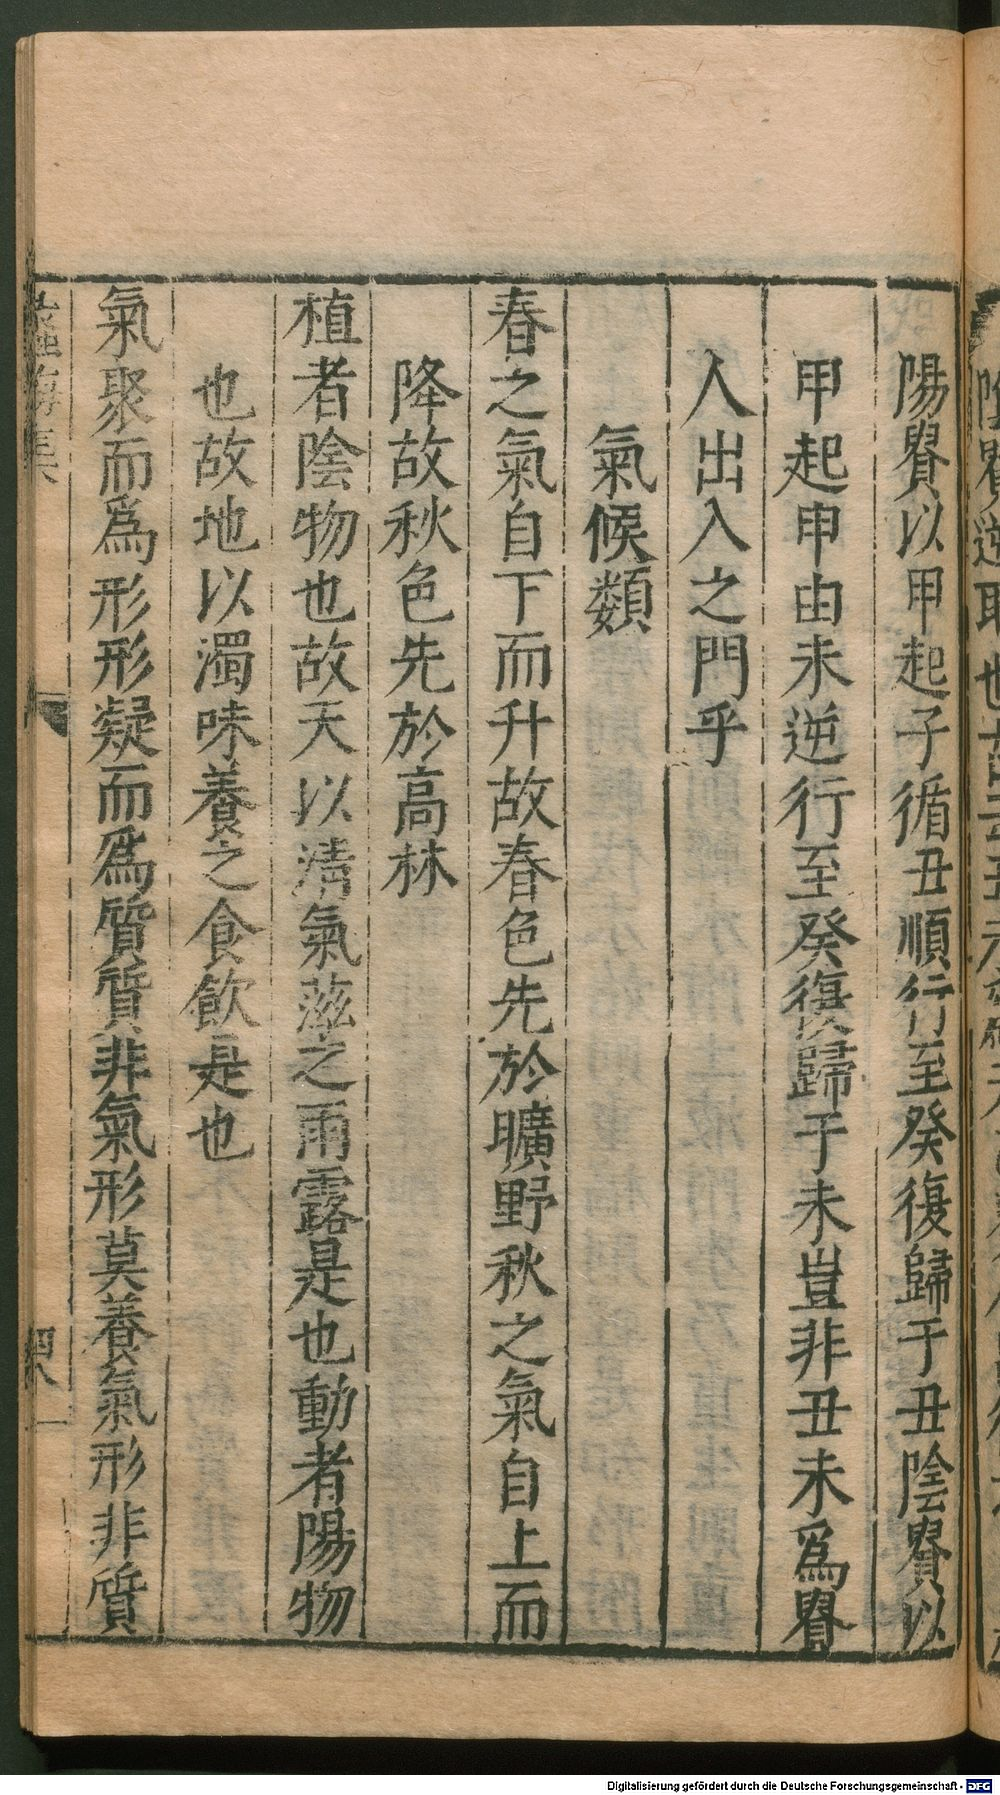 陽貴以甲起子循丑順行至癸復歸于丑陰貴以
甲起申由未逆行至癸復歸于未豈非丑未爲貴
人出入之門乎
氣候類
春之氣自下而升故春色先於曠野秋之氣自上而
降故秋色先於高林
植者陰物也故天以清氣滋之雨露是也動者陽物
也故地以濁味養之食飲是也
氣聚而爲形形凝而爲質質非氣形莫養氣形非質
蠡海集
四八
Digitalisierung gefördert durch die Deutsche Forschungsgemeinschaft - DFG